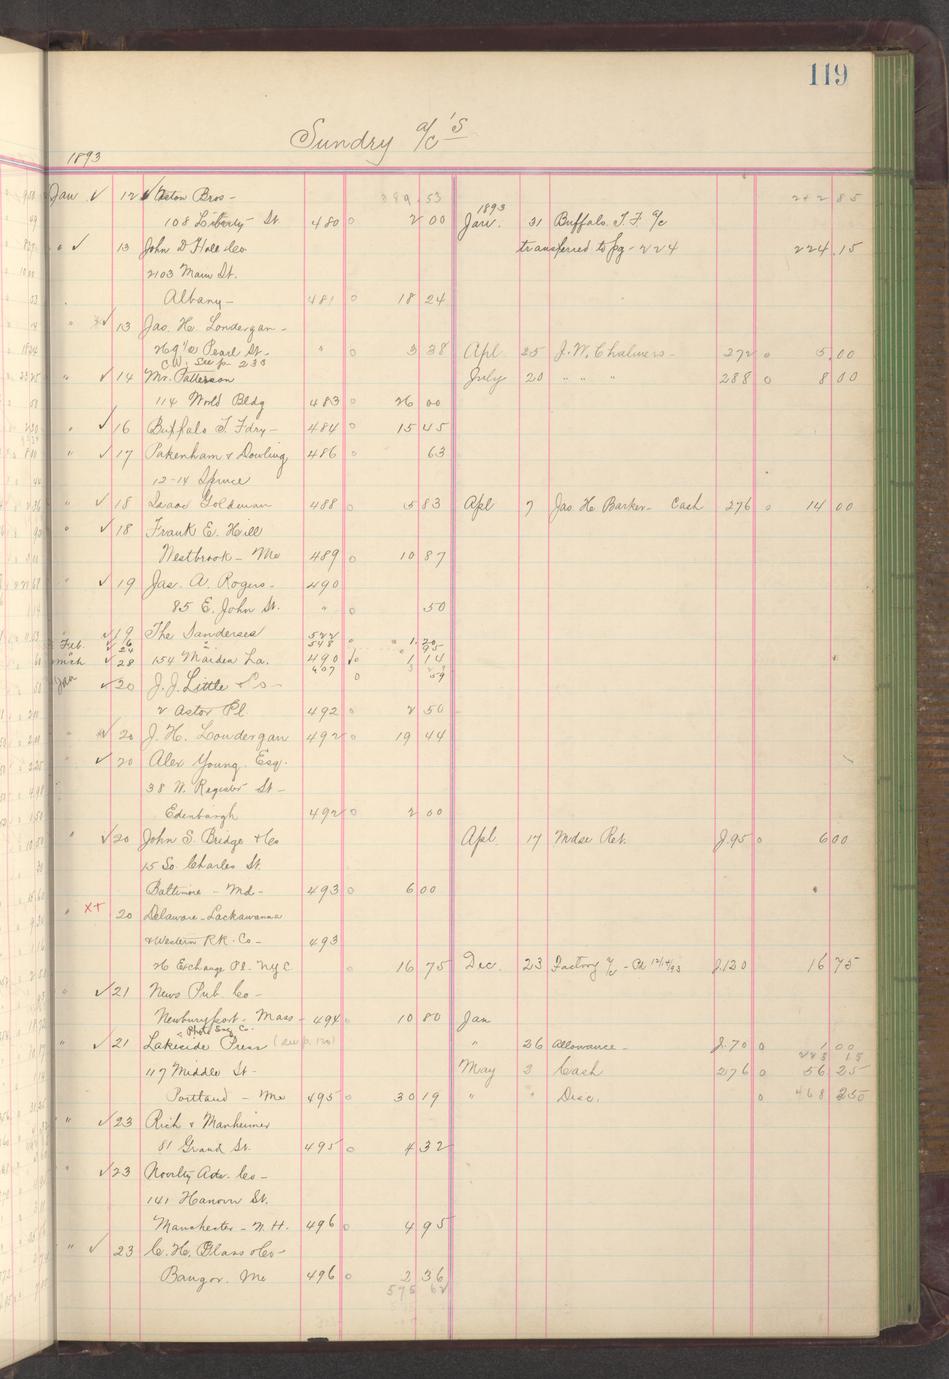 119
Sundry a/c's
1893
Jan 12 Aston Bros - 289.53
108 Liberty St 480 0 2 00
" 13 John D Hall & Co
2103 Main St.
Albany - 481 0 18 24
" 13 Jas. H. Londergan -
Pearl St. " 0 3 38
C.W. See p- 230
" 14 Mr. Patterson
114 World Bldg 483 0 26 00
" 16 Buffalo T. Fdry - 484 0 15 45
" 17 Pakenham & Dowling 486 0 63
12-14 Spruce
" 18 Isaac Goldman 488 0 5 83
" 18 Frank E. Hill
Westbrook - Me 489 0 10 87
" 19 Jas. A. Rogers - 490
85 E. John St. " 0 50
" 19 The Sanderses 522
Feb. 16 " 548 0 1.20
24 95
Mch 28 154 Maiden La. 490 0 1 14
607 0 59
Jan 20 J. J. Little & Co -
2 Astor Pl. 492 0 2 50
" 20 J. H. Londergan 492 0 19 44
" 20 Alex Young. Esq.
38 W. Register St -
Edinburgh 492 0 2 00
" 20 John S. Bridge & Co
15 So. Charles St.
Baltimore - Md - 493 0 6 00
" x+ 20 Delaware - Lackawanna
& Western RR. Co - 493
26 Exchange Pl. NYC 0 16 75
" 21 News Pub Co -
Newburyport - Mass - 494 0 10 80
Photo Eng. Co.
" 21 Lakeside Press (see p. 120)
117 Middle St -
Portland - Me 495 0 30 19
" 23 Rich & Manheimer
81 Grand St. 495 0 4 32
" 23 Novelty Adv. Co -
141 Hanover St.
Manchester - N. H. 496 0 4 95
" 23 C. H. Glass & Co -
Bangor. Me 496 0 2 36
575 62
242 85
1893
Jan. 31 Buffalo T. F. a/c
transferred to pg - 224 224.15
Apl 25 J. W. Chalmers - 272 0 5.00
July 20 " " " 288 0 8 00
Apl 7 Jas. H. Barker - Cash 276 0 14 00
Apl. 17 Mdse Ret. J.95 0 6 00
Dec. 23 Factory a/c - Cd 12/14/93 J.130 16 75
Jan
" 26 Allowance - J.70 0 1 00
May 3 Cash 276 0 56 25
" " Disc. 0